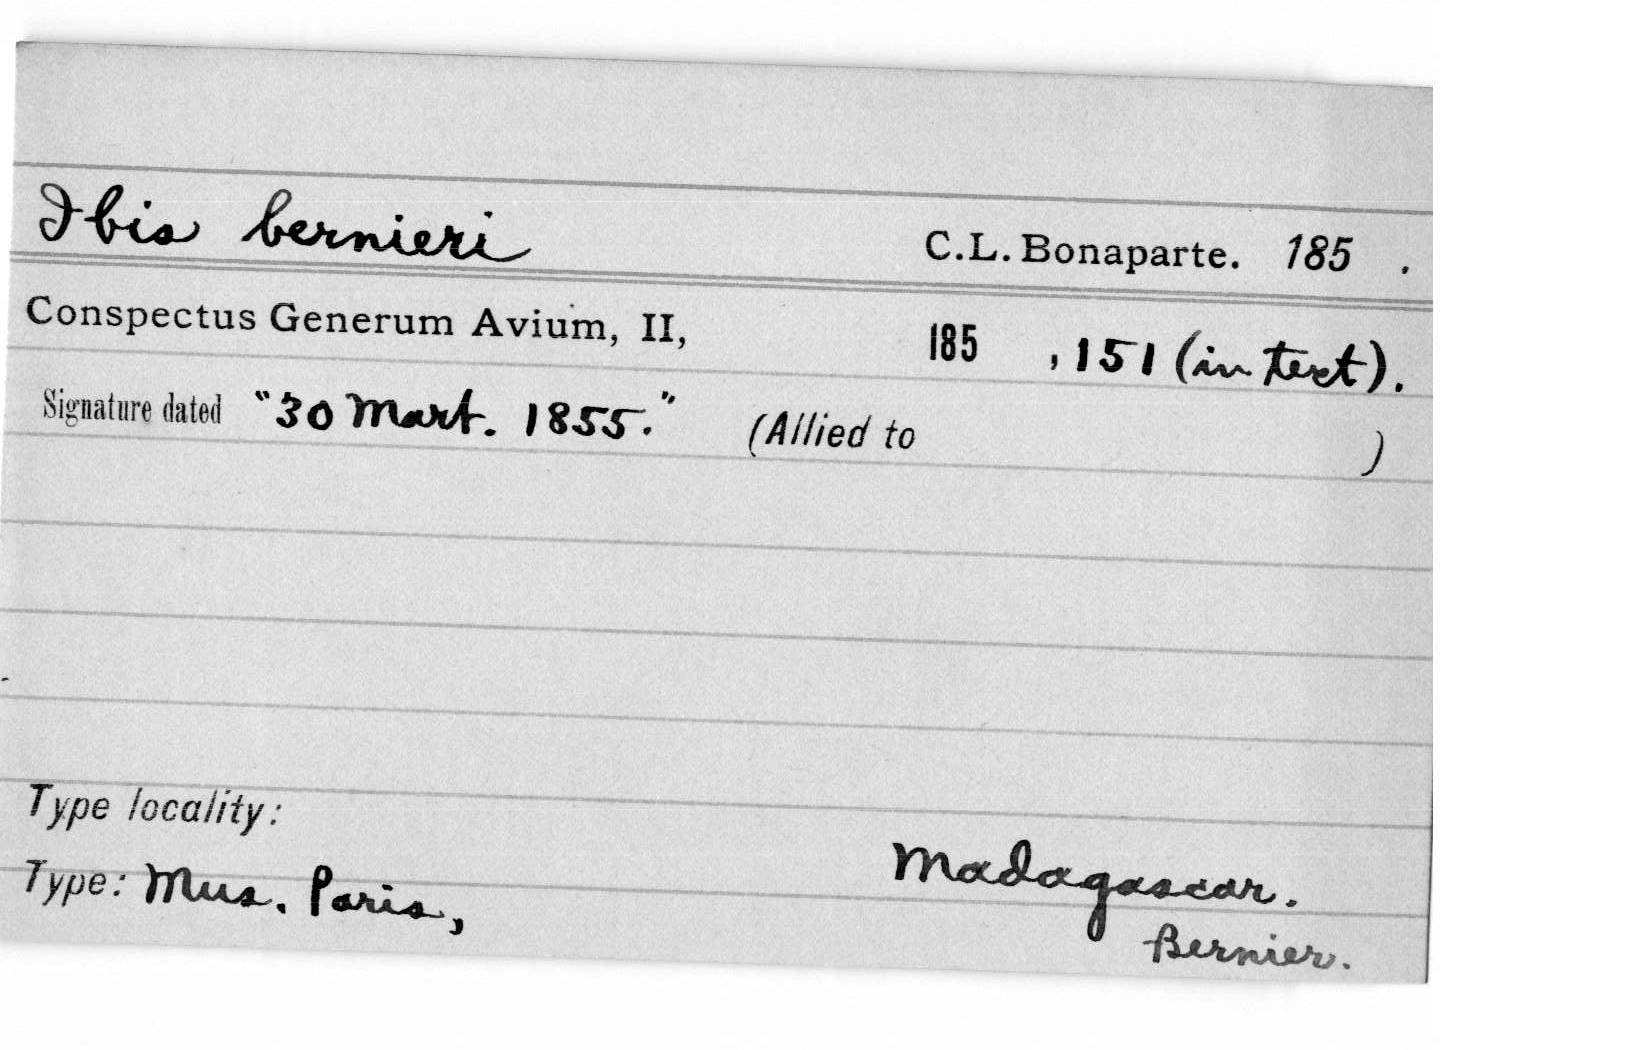 Ibis bernieri C.L. Bonaparte. 185 .
Conspectus Generum Avium, II, 185 , 151 (in text).
Signature dated "30 Mart. 1855." (Allied to )
Type locality:
Madagascar.
Type: Mus. Paris,
Bernier.